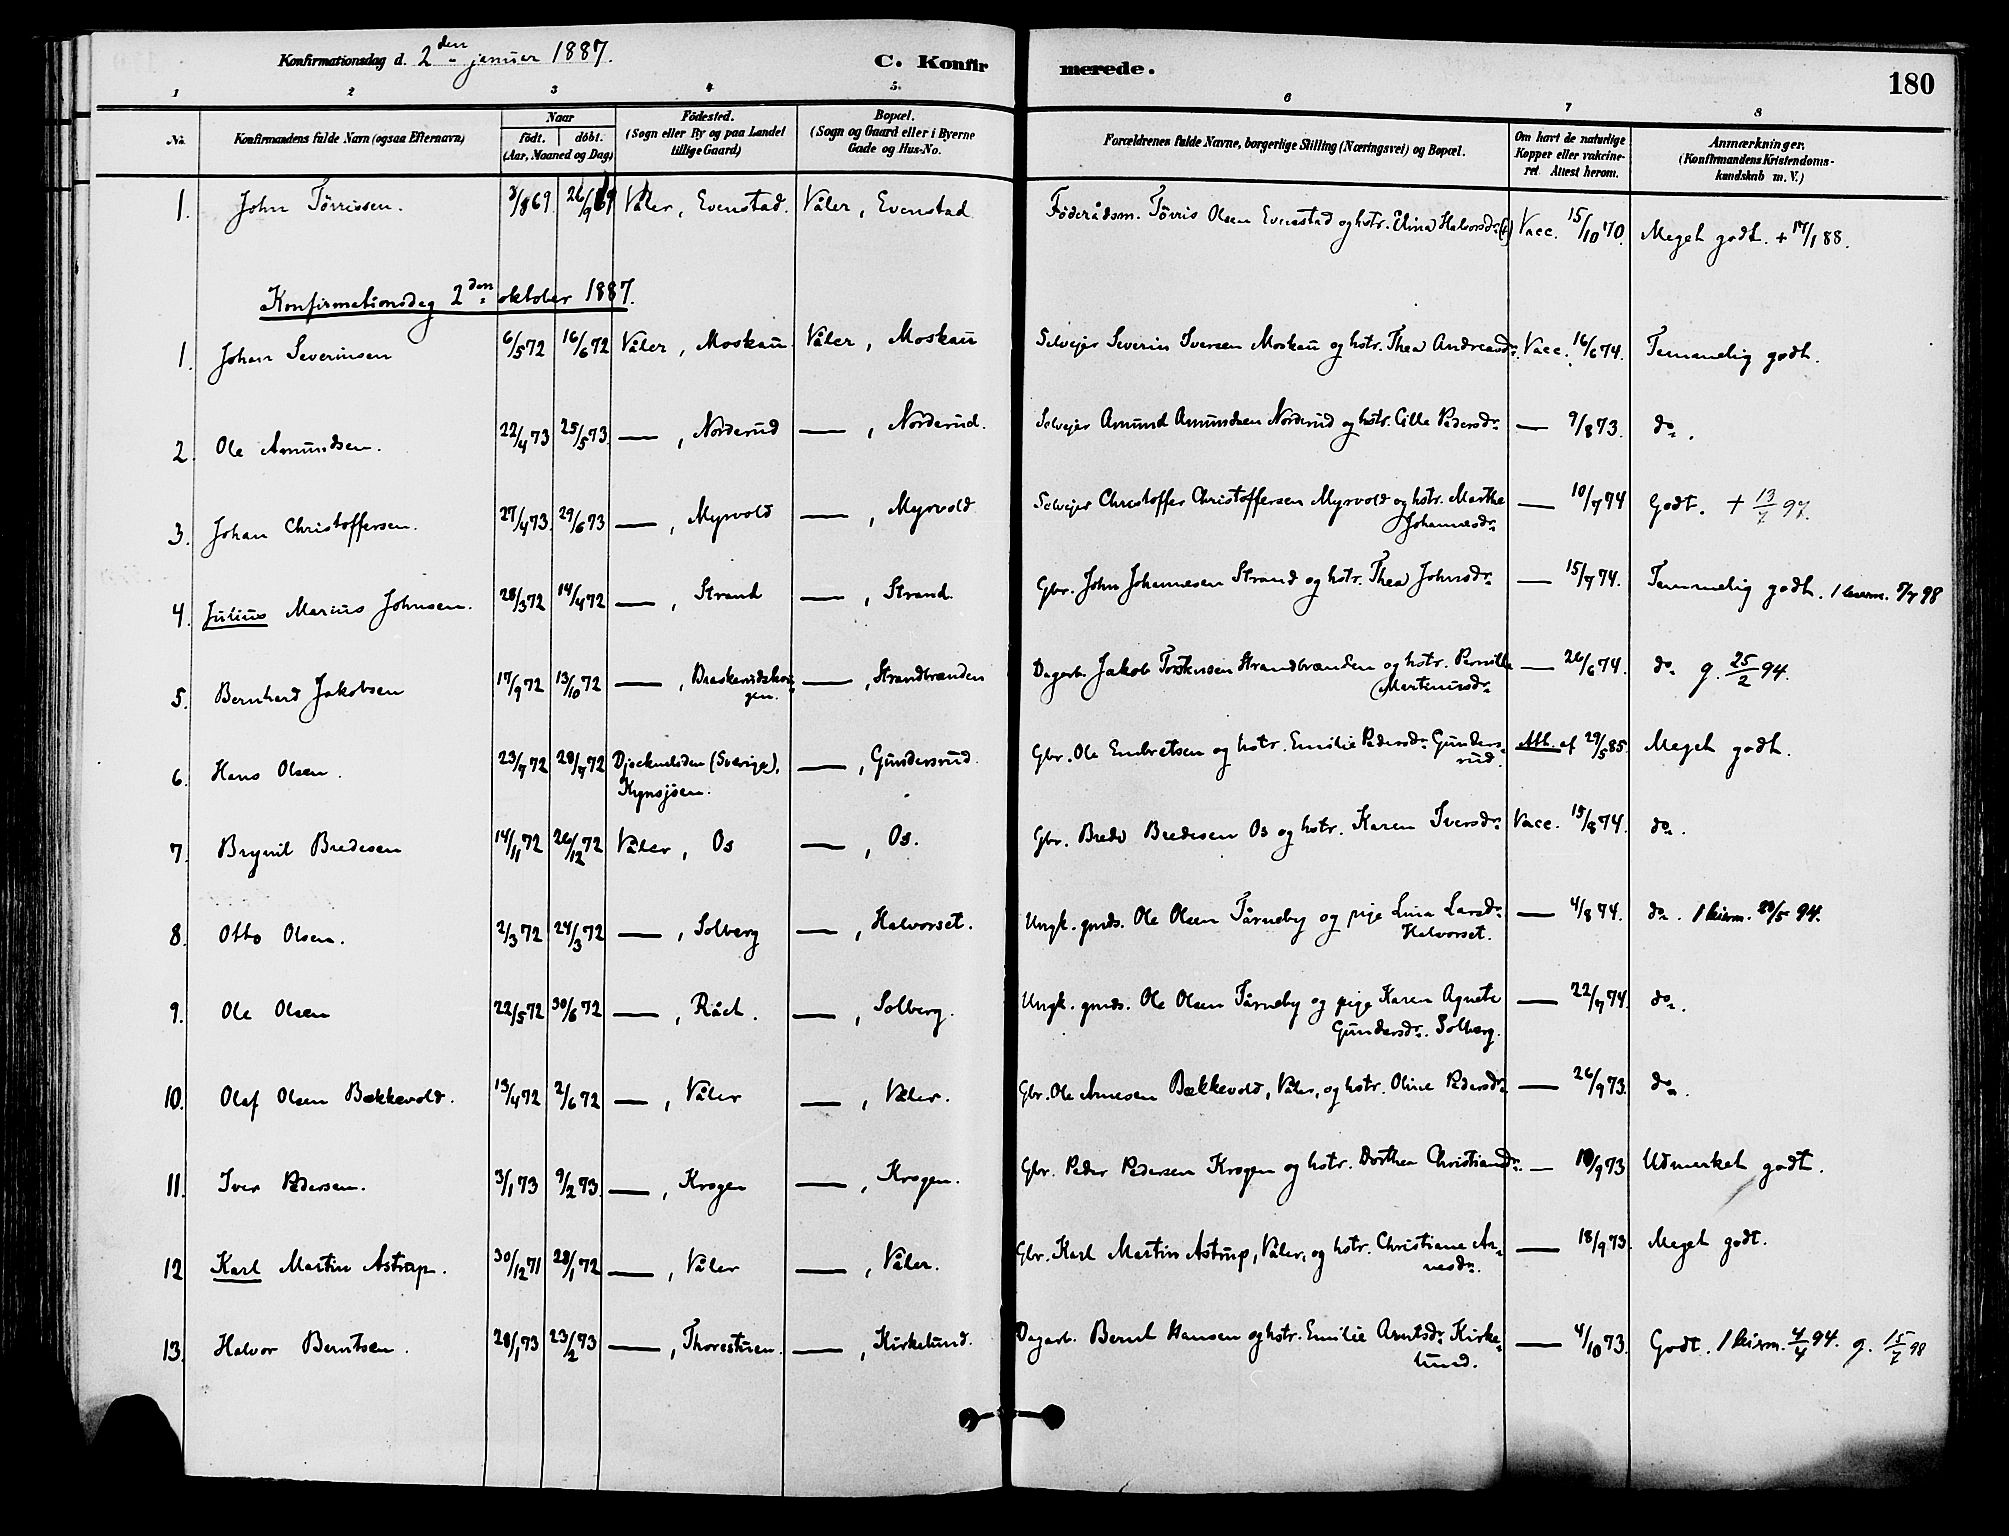 Konfirmationsdag d. 2den januar 1887. C. Konfirmerede. 180
1 2 3 4 5. 6 7 8
No. Konfirmandens fulde Navn (ogsaa Efternavn) Naar födt. döbt. (Aar, Maaned og Dag) Födested. (Sogn eller By og paa Landet tillige Gaard) Bopæl. (Sogn og Gaard eller i Byerne Gade og Hus-No. Forældrenes fulde Navne, borgerlige Stilling (Næringsvei) og Bopæl. Om havt de naturlige Kopper eller vaksineret. Attest herom. Anmærkninger. (Konfirmandens Kristendomskundskab m. V.)
1. John Tørrissen. 3/8 69 26/9 69 Våler, Evenstad. Våler, Evenstad Føderådsm. Tørris Olsen Evenstad og hstr. Elina Halvorsdr. Vacc. 15/10 70. Meget godt. + 17/1 88.
Konfirmationsdag 2den oktober 1887.
1. Johan Severinsen 6/5 72 16/6 72 Våler, Moskau Våler, Moskau Selvejer Severin Iversen Moskau og hstr. Thea Andreasdr. Vacc. 16/6 74. Temmelig godt.
2. Ole Amundsen. 22/4 73 25/5 73 — , Norderud — , Norderud. Selvejer Amund Amundsen Norderud og hstr. Cille Pedersdr. — 9/8 73. do.
3. Johan Christoffersen. 27/4 73. 29/6 73 — , Myrvold — , Myrvold Selvejer Christoffer Christoffersen Myrvold og hstr. Marthe — 10/7 74 Godt. + 13/7 97.
Johannesdr.
4. Julius Marius Johnsen. 28/3 72 14/4 72 — , Strand — , Strand. Gbr. John Johannesen Strand og hstr. Thea Johnsdr. — 15/7 74. Temmelig godt. 98
5. Bernhard Jakobsen 17/9 72 13/10 72 — , Braskerudshau- — , Strandbrænden Dagarb. Jakob Torstensen Strandbrænden og hstr. Pernille — 26/6 74. do g. 25/2 94.
gen. (Martinusdr.
6. Hans Olsen. 23/7 72 28/7 72 (Sverige), — , Gundersrud. Gbr. Ole Embretsen og hstr. Emilie Pedersdr. Gunders- Att. af 29/5 85. Meget godt.
Kynsjøen. rud.
7. Brynil Bredesen 14/11 72 26/12 72 Våler, Os — , Os. Gbr. Brede Bredesen Os og hstr. Karen Iversdr. Vacc. 15/8 74. do.
8. Otto Olsen. 2/3 72 24/3 72 — , Solberg — , Halvorset. Ungk. gmds. Ole Olsen Tårneby og pige Lina Larsdr. — 4/8 74. do. 29/5 94.
Halvorset.
9. Ole Olsen 22/5 72 30/6 72 — , Rået. — , Solberg. Ungk. gmds. Ole Olsen Tårneby og pige Karen Agnete — 22/7 74. do.
Gundersdr. Solberg.
10. Olaf Olsen Bækkevold. 13/4 72 2/6 72 — , Våler — , Våler. Gbr. Ole Arnesen Bækkevold, Våler, og hstr. Oline Pedersdr. — 26/9 73. do.
11. Iver Pedersen. 3/1 73 9/2 73. — , Krogen — , Krogen. Gbr. Peder Pedersen Krogen og hstr. Dorthea Christiansdr. — 10/9 73 Udmerket godt.
12 Karl Martin Astrup. 30/12 71 28/1 72 — , Våler — , Våler. Gbr. Karl Martin Astrup, Våler, og hstr. Christiane Ar- — 18/9 73. Meget godt.
nesdr.
13. Halvor Berntsen. 28/1 73 23/2 73 — , Thorestuen. — , Kirkelund. Dagarb. Bernt Hansen og hstr. Emilie Arntsdr. Kirke- — 4/10 73. Godt. 4/4 94. g. 15/7 98
lund.